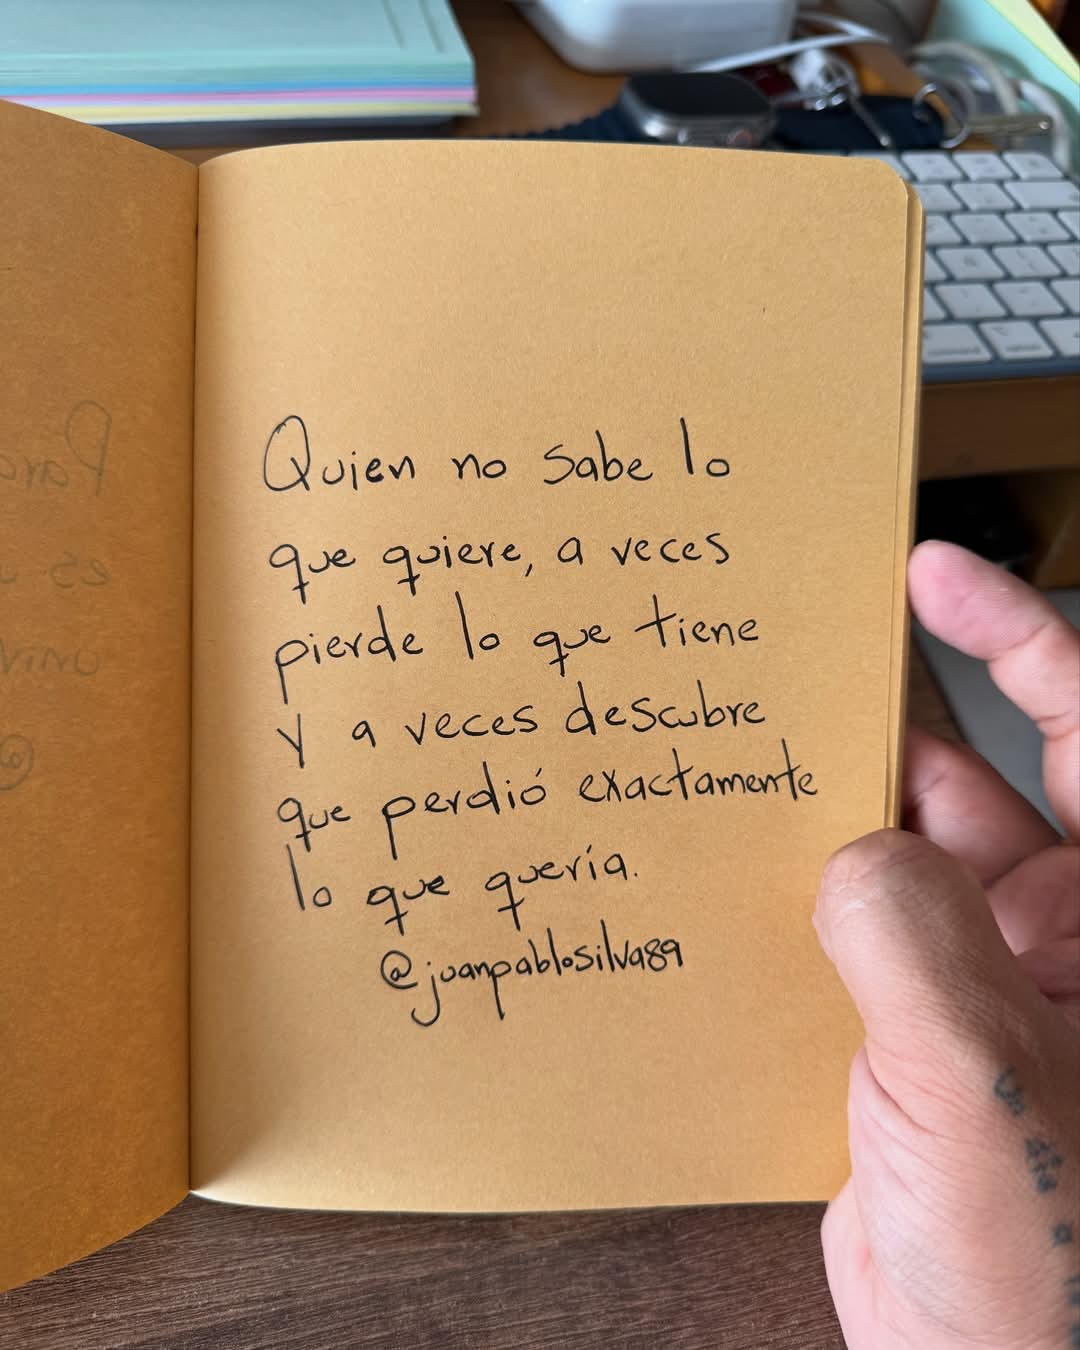 Quien no sabe lo
que quiere, a veces
pierde lo que tiene
y a veces descubre
que perdió exactamente
lo que quería.
@juanpablosilva89